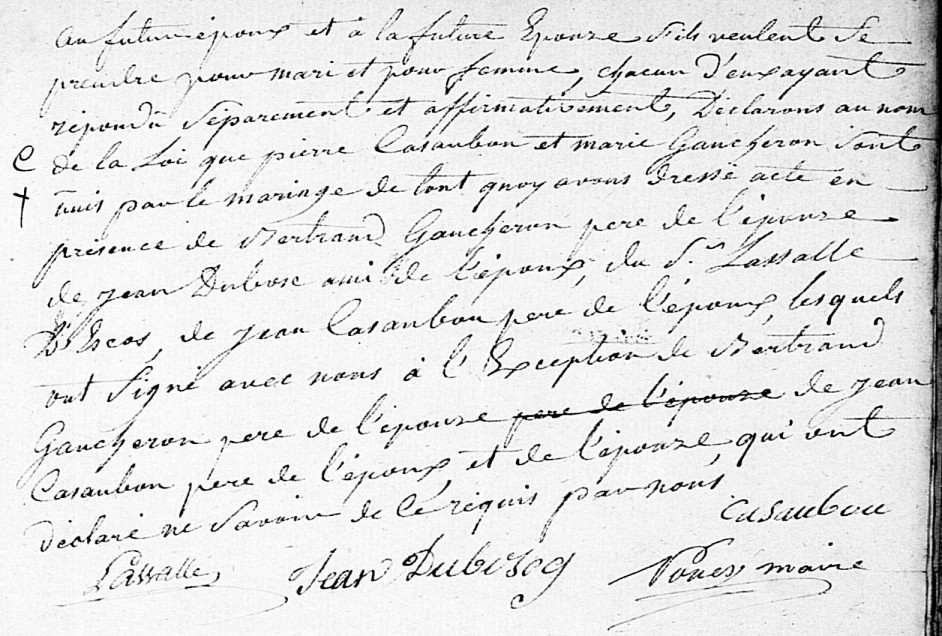 au futur époux et à la future Epouze S'ils veulent se
prendre pour mari et pour femme, chacun d'eux ayant
répondu Séparement et affirmativement, Déclarons au nom
C de la Loi que pierre Casaubon et marie Gaucheron sont
† unis par le mariage de tout quoy avons dressé acte en
présence de Bertrand Gaucheron pere de l'épouze
de jean Dubosc ami de l'époux, du Sr. Lassalle
D'Escos, de jean Casaubon pere de l'époux, lesquels
ont Signé avec nous à l'Exception de Bertrand
Gaucheron pere de l'épouze pere de l'épouze de jean
Casaubon pere de l'époux, et de l'épouze, qui ont
déclaré ne Savoir de ce réquis par nous
Casaubon
Lassalle Jean Duboscq maire